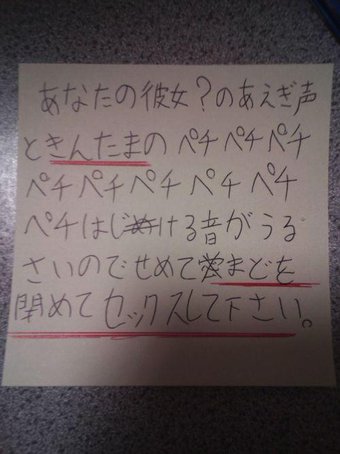 あなたの彼女?のあえぎ声
ときんたまの ペチ ペチ ペチ
ペチ ペチ ペチ ペチ ペチ ペチ
ペチはじける音がうる
さいのでせめてまどを
閉めてセックスして下さい。